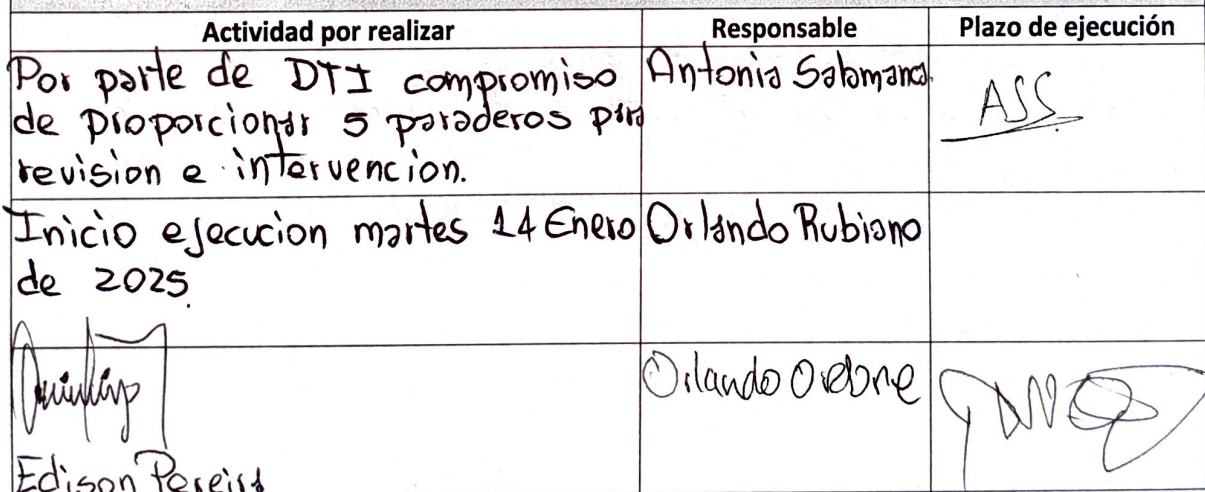 Actividad por realizar Responsable Plazo de ejecución
Por parte de DTI compromiso
de proporcionar 5 paraderos para
revision e intervencion.
Antonia Salamanca
ASS
Inicio ejecucion martes 14 Enero
de 2025
Orlando Rubiano
Edison Pereira
Orlando